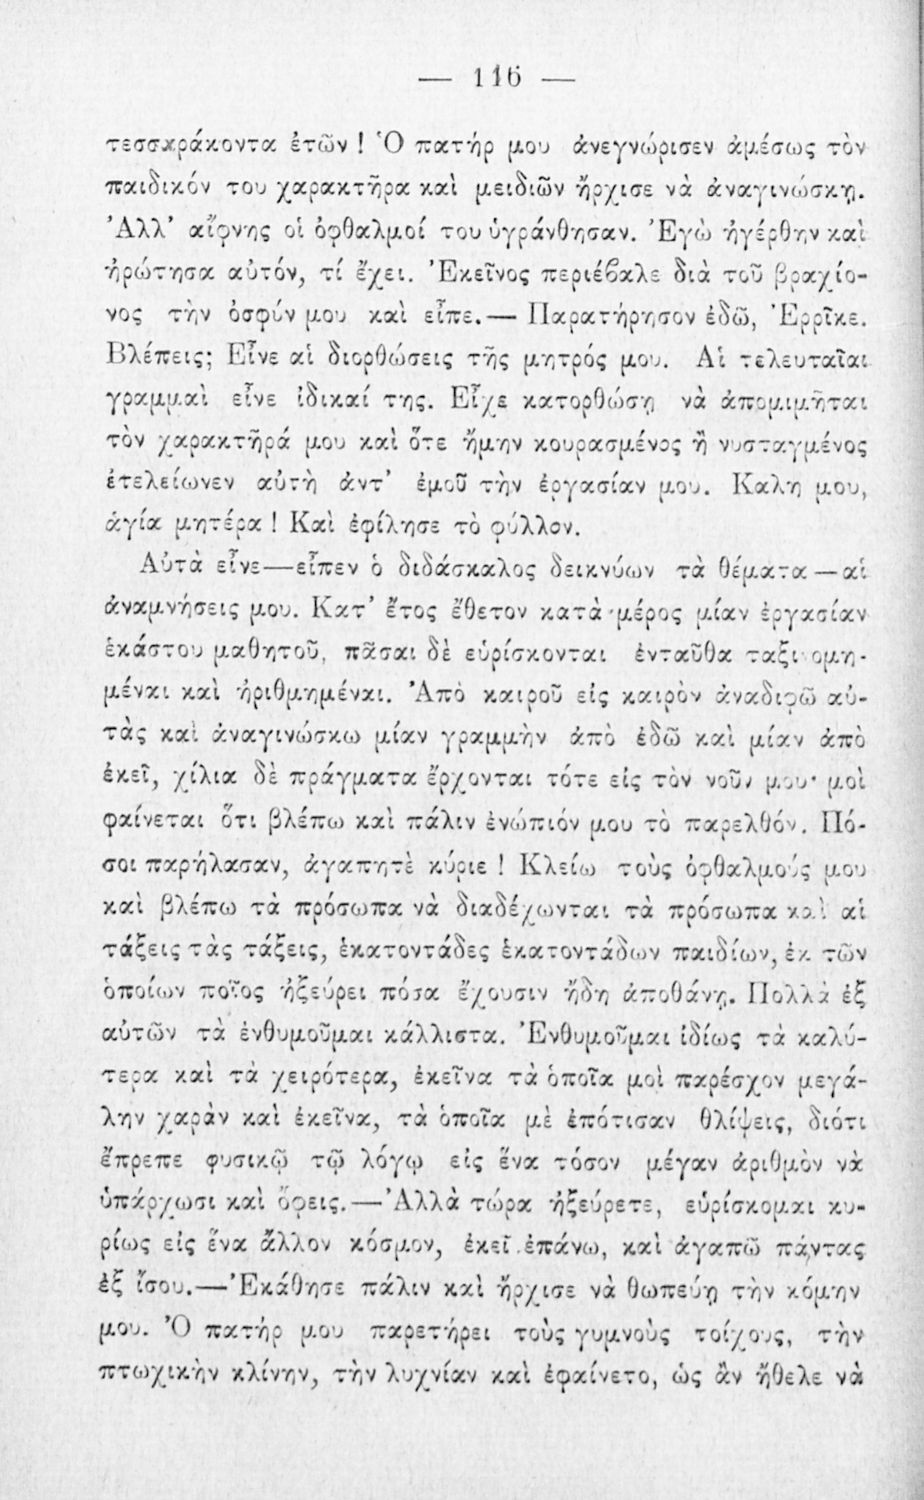 — 116 —
τεσσαράκοντα ἐτῶν ! Ὁ πατήρ μου ἀνεγνώρισεν ἀμέσως τὸν
παιδικόν του χαρακτῆρα καὶ μειδιῶν ἤρχισε νὰ ἀναγινώσκῃ.
Ἀλλ’ αἴφνης οἱ ὀφθαλμοί του ὑγράνθησαν. Ἐγὼ ἠγέρθην καὶ
ἠρώτησα αὐτόν, τί ἔχει. Ἐκεῖνος περιέβαλε διὰ τοῦ βραχίο-
νος τὴν ὀσφύν μου καὶ εἶπε.— Παρατήρησον ἐδῶ, Ἐρρῖκε.
Βλέπεις; Εἶνε αἱ διορθώσεις τῆς μητρός μου. Αἱ τελευταῖαι
γραμμαὶ εἶνε ἰδικαί της. Εἶχε κατορθώσῃ νὰ ἀπομιμῆται
τὸν χαρακτῆρά μου καὶ ὅτε ἤμην κουρασμένος ἢ νυσταγμένος
ἐτελείωνεν αὐτὴ ἀντ’ ἐμοῦ τὴν ἐργασίαν μου. Καλη μου,
ἁγία μητέρα ! Καὶ ἐφίλησε τὸ φύλλον.
Αὐτὰ εἶνε—εἶπεν ὁ διδάσκαλος δεικνύων τὰ θέματα — αἱ
ἀναμνήσεις μου. Κατ’ ἔτος ἔθετον κατὰ μέρος μίαν ἐργασίαν
ἑκάστου μαθητοῦ, πᾶσαι δὲ εὑρίσκονται ἐνταῦθα ταξι ομη-
μέναι καὶ ἠριθμημέναι. Ἀπὸ καιροῦ εἰς καιρὸν ἀναδιφῶ αὐ-
τὰς καὶ ἀναγινώσκω μίαν γραμμὴν ἀπὸ ἐδῶ καὶ μίαν ἀπὸ
ἐκεῖ, χίλια δὲ πράγματα ἔρχονται τότε εἰς τὸν νοῦν μου· μοὶ
φαίνεται ὅτι βλέπω καὶ πάλιν ἐνώπιόν μου τὸ παρελθόν. Πό-
σοι παρήλασαν, ἀγαπητὲ κύριε ! Κλείω τοὺς ὀφθαλμούς μου
καὶ βλέπω τὰ πρόσωπα νὰ διαδέχωνται τὰ πρόσωπα καὶ αἱ
τάξεις τὰς τάξεις, ἑκατοντάδες ἑκατοντάδων παιδίων, ἐκ τῶν
ὁποίων ποῖος ἠξεύρει πόσα ἔχουσιν ἤδη ἀποθάνῃ. Πολλὰ ἐξ
αὐτῶν τὰ ἐνθυμοῦμαι κάλλιστα. Ἐνθυμοῦμαι ἰδίως τὰ καλύ-
τερα καὶ τὰ χειρότερα, ἐκεῖνα τὰ ὁποῖα μοὶ παρέσχον μεγά-
λην χαρὰν καὶ ἐκεῖνα, τὰ ὁποῖα μὲ ἐπότισαν θλίψεις, διότι
ἔπρεπε φυσικῷ τῷ λόγῳ εἰς ἕνα τόσον μέγαν ἀριθμὸν νὰ
ὑπάρχωσι καὶ ὄφεις.—Ἀλλὰ τώρα ἠξεύρετε, εὑρίσκομαι κυ-
ρίως εἰς ἕνα ἄλλον κόσμον, ἐκεῖ ἐπάνω, καὶ ἀγαπῶ πάντας
ἐξ ἴσου.—Ἐκάθησε πάλιν καὶ ἤρχισε νὰ θωπεύῃ τὴν κόμην
μου. Ὁ πατήρ μου παρετήρει τοὺς γυμνοὺς τοίχους, τὴν
πτωχικὴν κλίνην, τὴν λυχνίαν καὶ ἐφαίνετο, ὡς ἂν ἤθελε νὰ